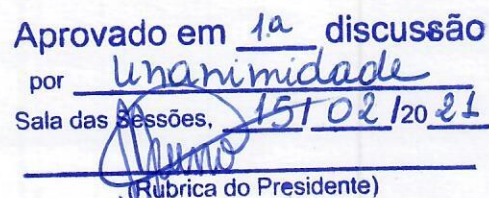 Aprovado em 1ª discussão
por unanimidade
Sala das Sessões, 15/02/2021
(Rubrica do Presidente)